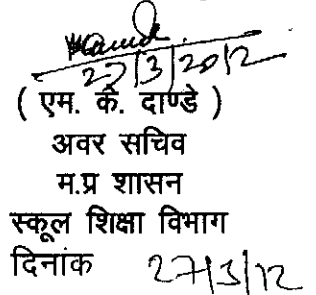 27/3/2012
( एम. के. दाण्डे )
अवर सचिव
म.प्र शासन
स्कूल शिक्षा विभाग
दिनांक 27/3/12